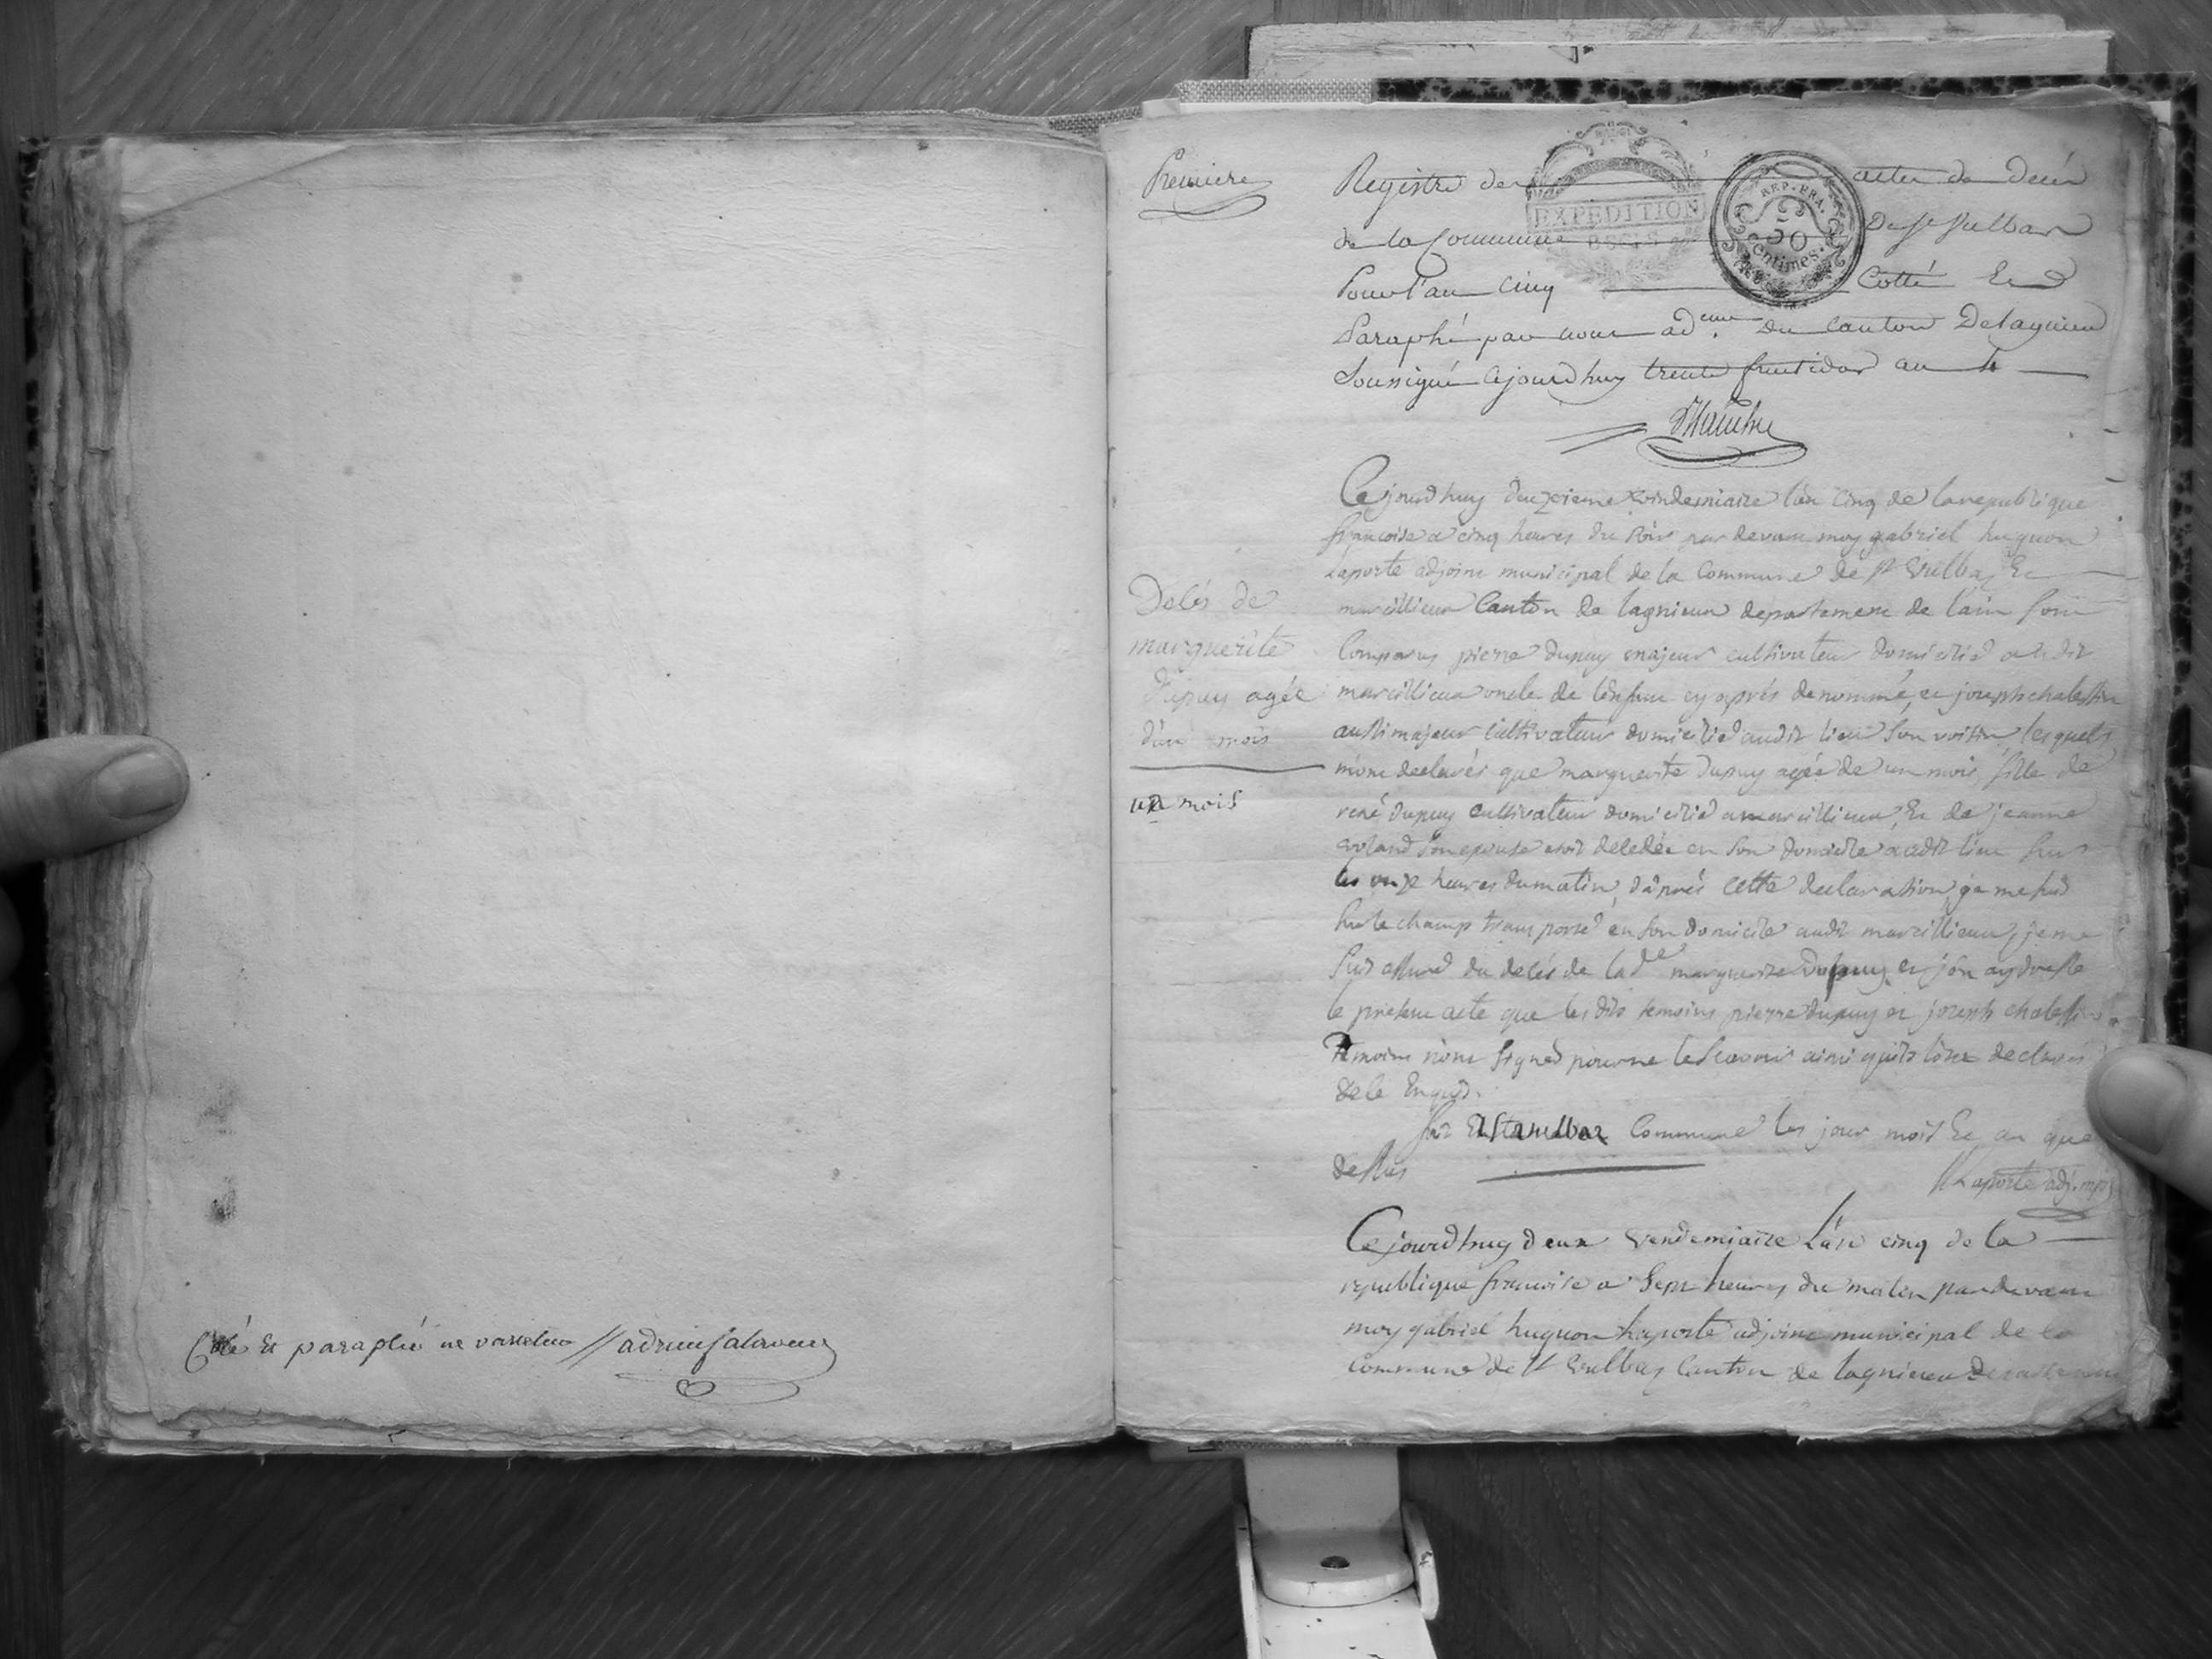 Coté Et paraphé ne varietur
Premiere
Registre des actes de Decés
de la Commune De St Vulbas
Pour l'an Cinq Cotté Et
Paraphé par nous ad. du Canton Delagnieu
Soussigné Cejourdhuy trente fructidor an 4
EXPEDITION
REP. FRA.
50
centimes.
Decés de
marguerite
dupuy agée
d'un mois
un mois
Cejourdhuy deuxieme vindemiaire l'an Cinq de la republique
francoise a cinq heures du soir par devant moy gabriel hugnon
Laporte adjoint municipal de la Commune de St Vulbas Et
marcillieux Canton de lagnieux departement de l'ain sont
Comparus pierre dupuy majeur cultivateur domicilié audit
marcillieux oncle de l'enfant cy aprés denommé, et joseph
aussi majeur Cultivateur domicilié audit lieu son voisin lesquels
m'ont declarés que marguerite dupuy agée de un mois fille de
rené dupuy cultivateur domicilié a marcillieux, Et de jeanne
voland son epouse etoit decedée en son domicile audit lieu sur
les onze heures du matin, d'aprés cette declaration, je me suis
sur le champ transporté en son domicile audit marcillieux, je me
suis assuré du decés de lade marguerite Dupuy et j'en ay dressé
le present acte que les dits temoins pierre dupuy et joseph
temoins n'ont signés pour ne le scavoir ainsi qu'ils l'ont declarés
de ce Enquis.
fait Et St Vulbas Commune les jour mois Et an que
dessus
Laporte adj. mpl
Cejourdhuy deux vendemiaire L'an cinq de la
republique francoise a sept heures du matin par devant
moy gabriel hugnon Laporte adjoint municipal de la
Commune de St Vulbas Canton de lagnieux departement